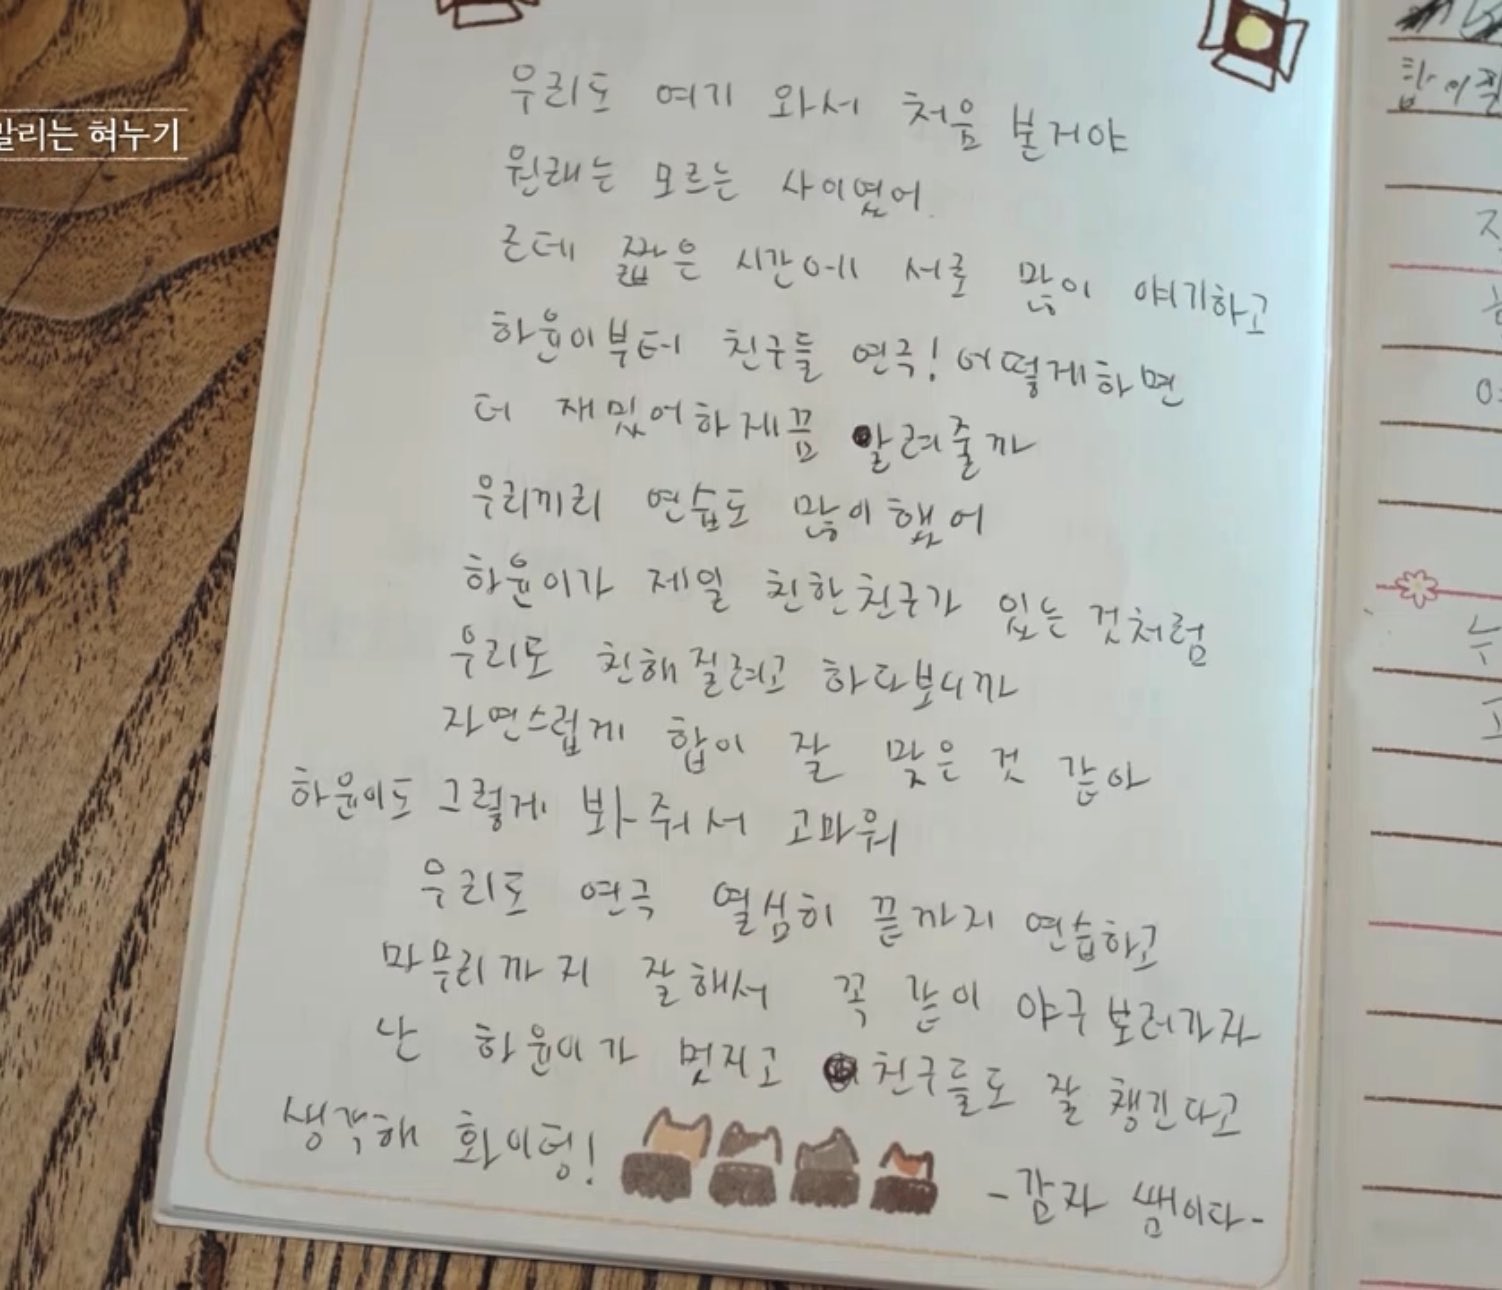 말리는 혀누기
우리도 여기 와서 처음 본거야
원래는 모르는 사이였어
근데 짧은 시간에 서로 많이 얘기하고
하윤이부터 친구들 연극! 어떻게하면
더 재밌어하게끔 알려줄까
우리끼리 연습도 많이했어
하윤이가 제일 친한친구가 있는 것처럼
우리도 친해질려고 하다보니까
자연스럽게 합이 잘 맞은 것 같아
하윤이도 그렇게 봐줘서 고마워
우리도 연극 열심히 끝까지 연습하고
마무리까지 잘해서 꼭 같이 야구보러가자
난 하윤이가 멋지고 친구들도 잘 챙긴다고
생각해 화이팅!
-감자 쌤이다-